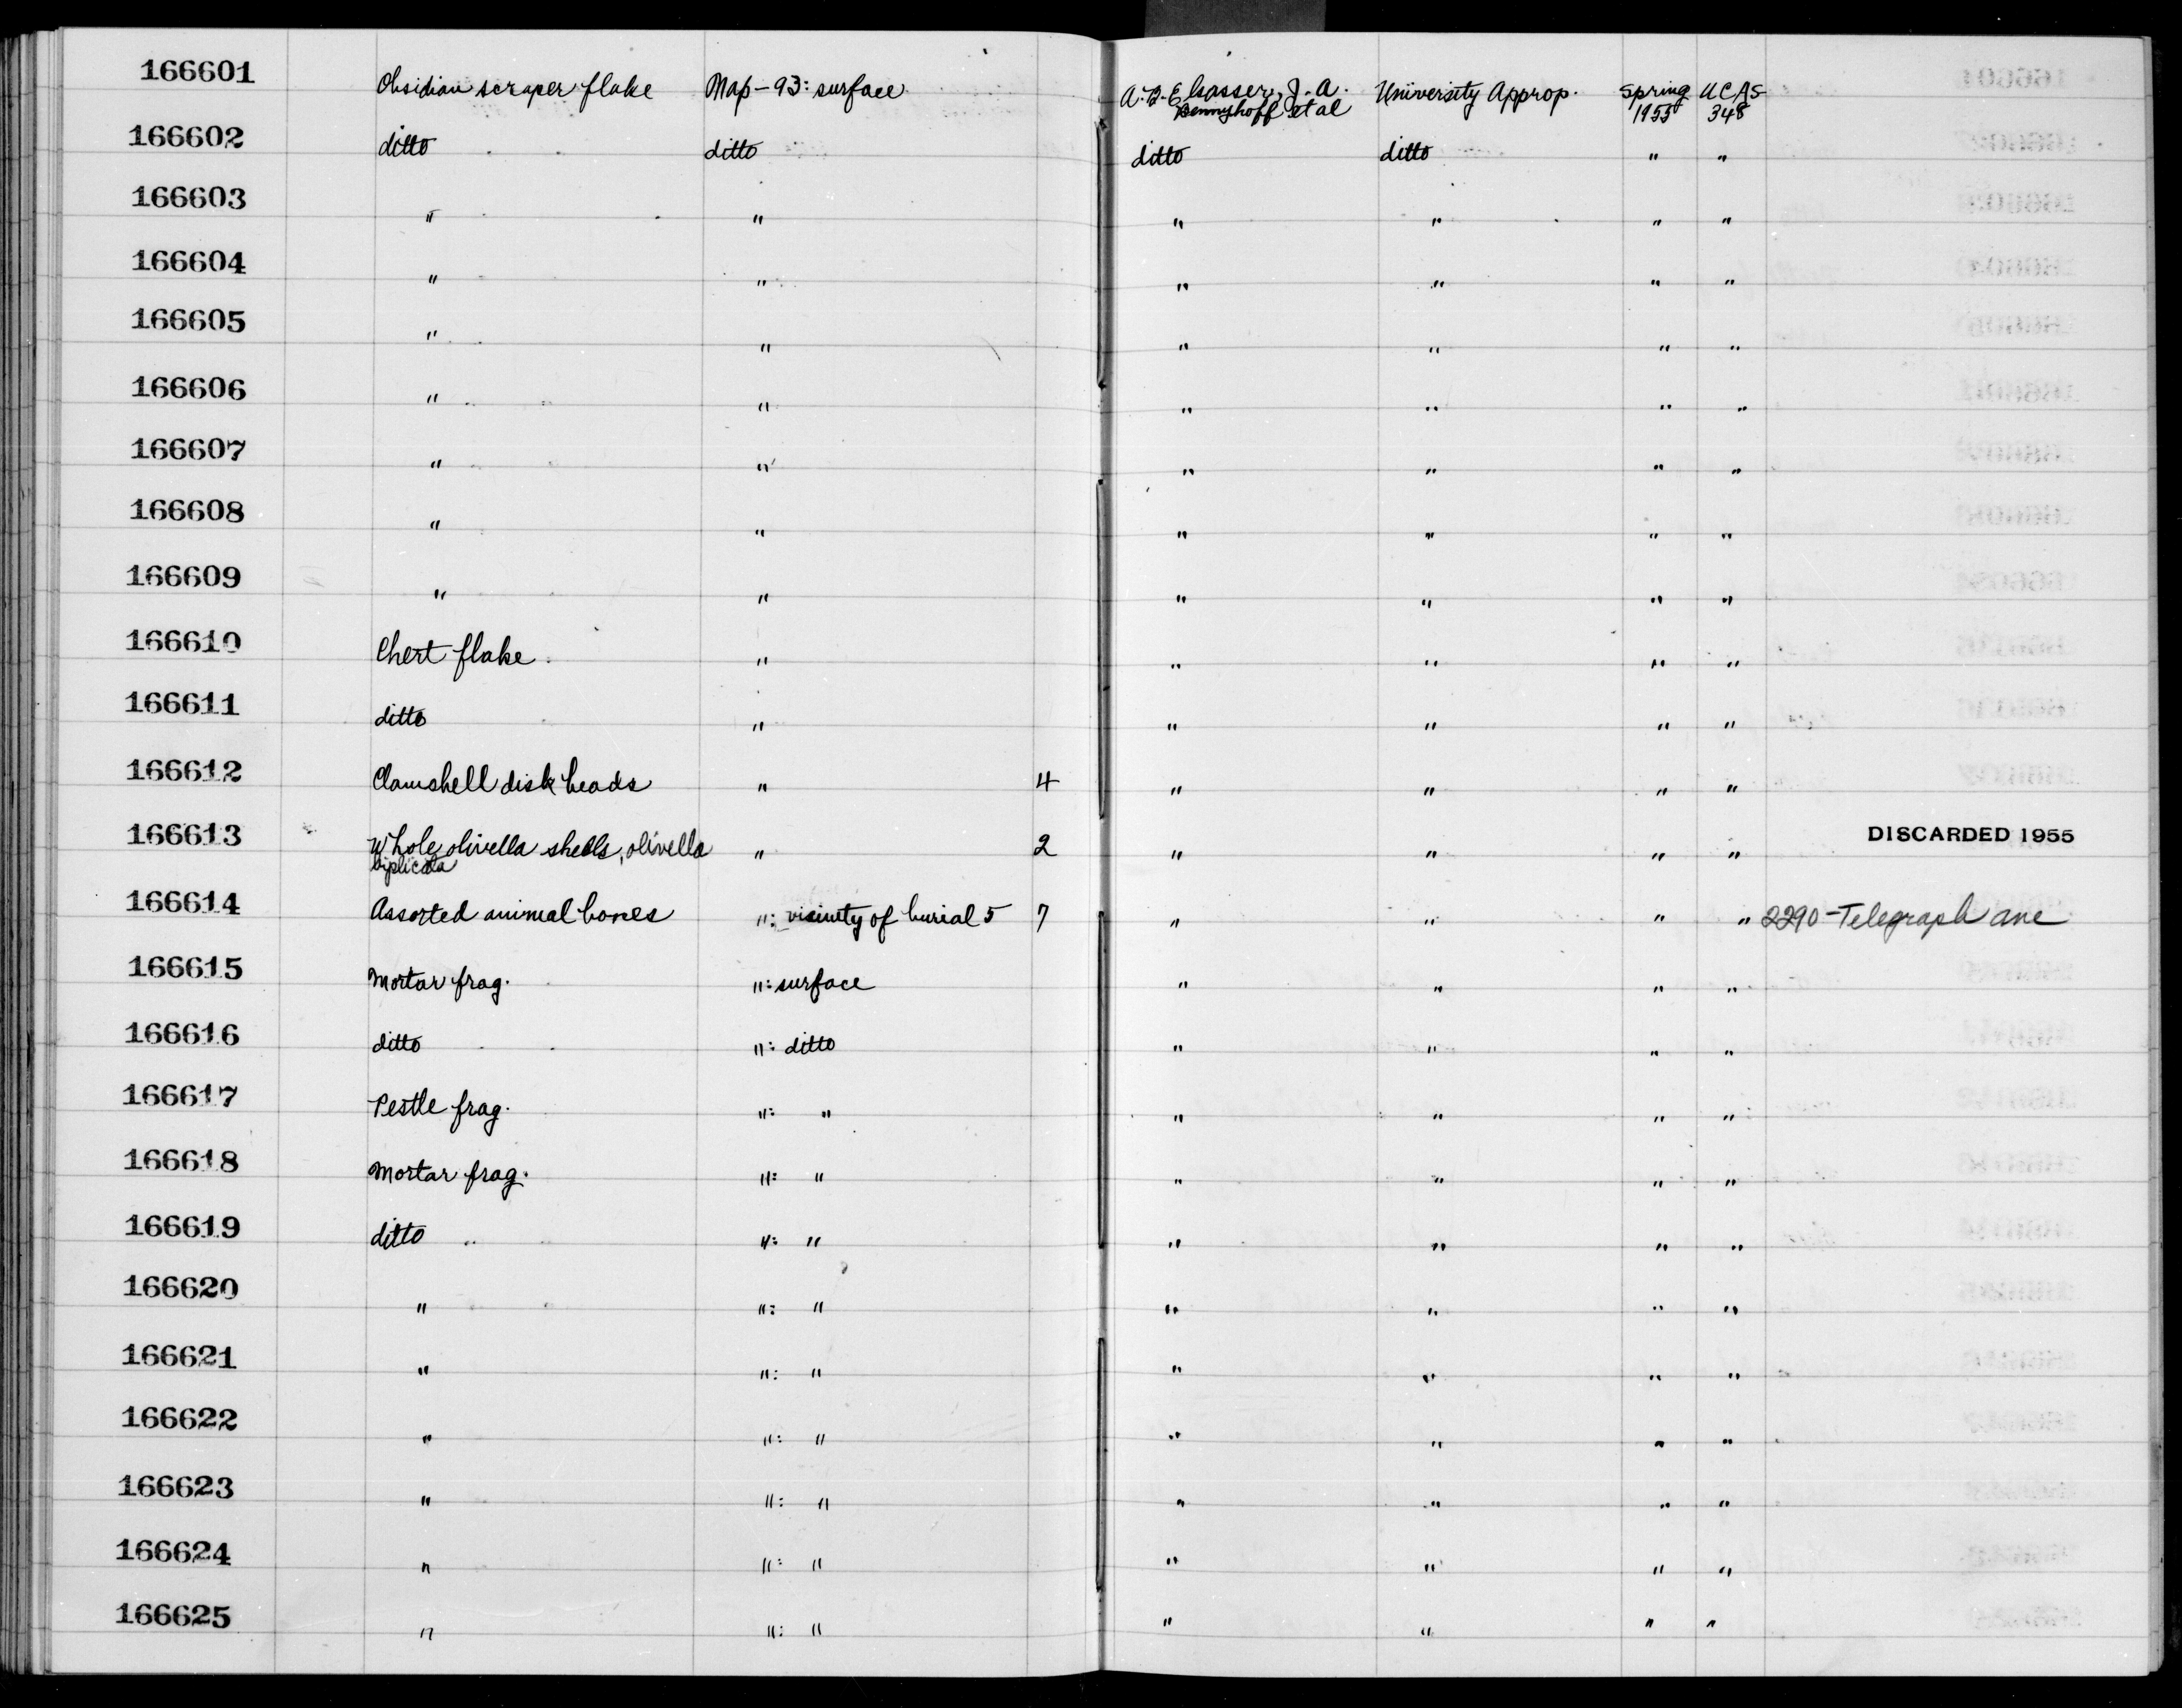 166601 Obsidian scraper flake Map-93: surface A. B. Elsasser, J. A. University Approp. Spring UCAS
Bennyhoff et al 1955 348
166602 ditto ditto ditto ditto " "
166603 " " " " " "
166604 " " " " " "
166605 " " " " " "
166606 " " " " " "
166607 " " " " " "
166608 " " " " " "
166609 " " " " " "
166610 Chert flake " " " " "
166611 ditto " " " " "
166612 Clamshell disk beads " 4 " " " "
166613 Whole olivella shells, olivella " 2 " " " " DISCARDED 1955
biplicata
166614 Assorted animal bones ": vicinity of burial 5 7 " " " " 2290-Telegraph ave
166615 Mortar frag. ": surface " " " "
166616 ditto ": ditto " " " "
166617 Pestle frag. ": " " " " "
166618 Mortar frag. ": " " " " "
166619 ditto ": " " " " "
166620 " ": " " " " "
166621 " ": " " " " "
166622 " ": " " " " "
166623 " ": " " " " "
166624 " ": " " " " "
166625 " ": " " " " "